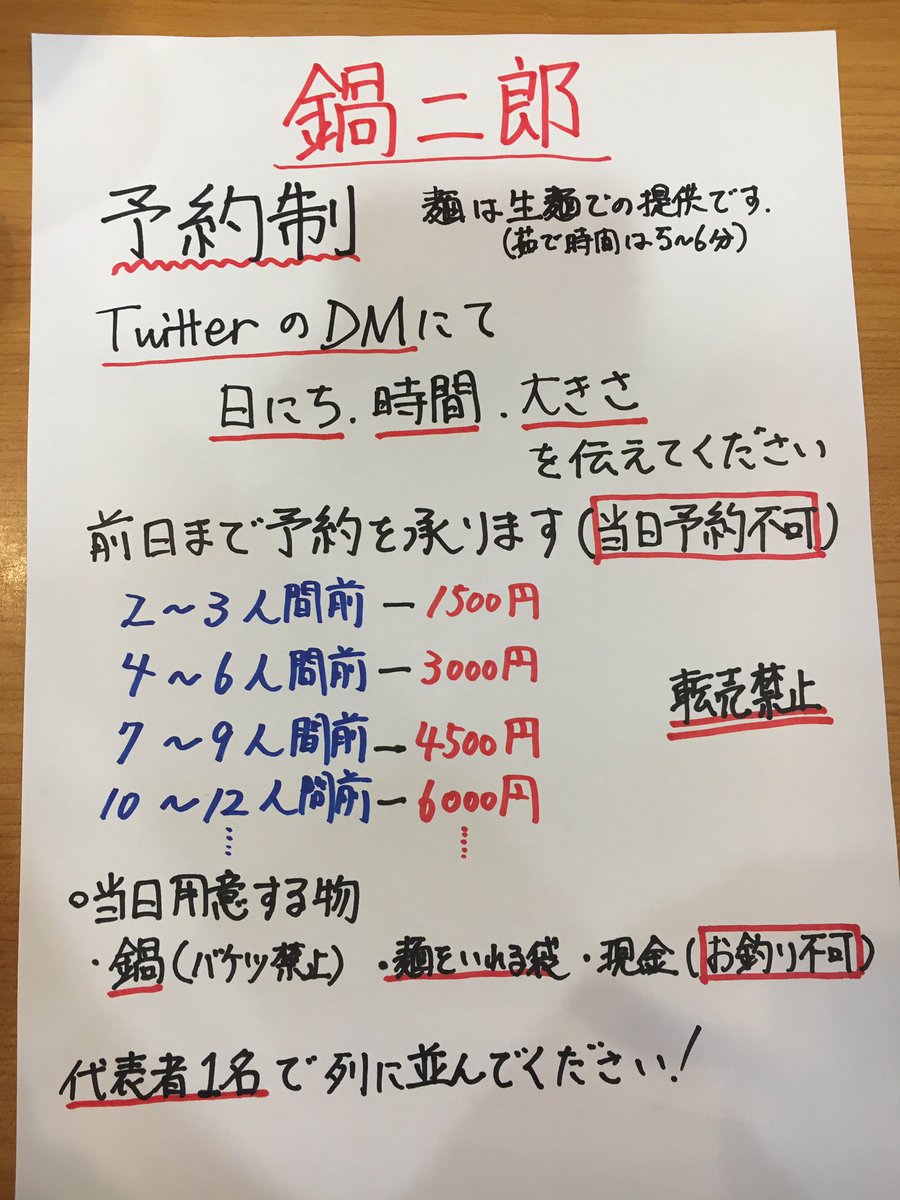 鍋二郎
予約制
麺は生麺での提供です.
(茹で時間は5~6分)
TwitterのDMにて
日にち.時間.大きさ
を伝えてください
前日まで予約を承ります(当日予約不可)
2~3人間前ー1500円
4~6人間前ー3000円
7~9人間前ー4500円
10~12人間前ー6000円
転売禁止
○当日用意する物
・鍋(バケツ禁止) ・麺をいれる袋 ・現金(お釣り不可)
代表者1名で列に並んでください!